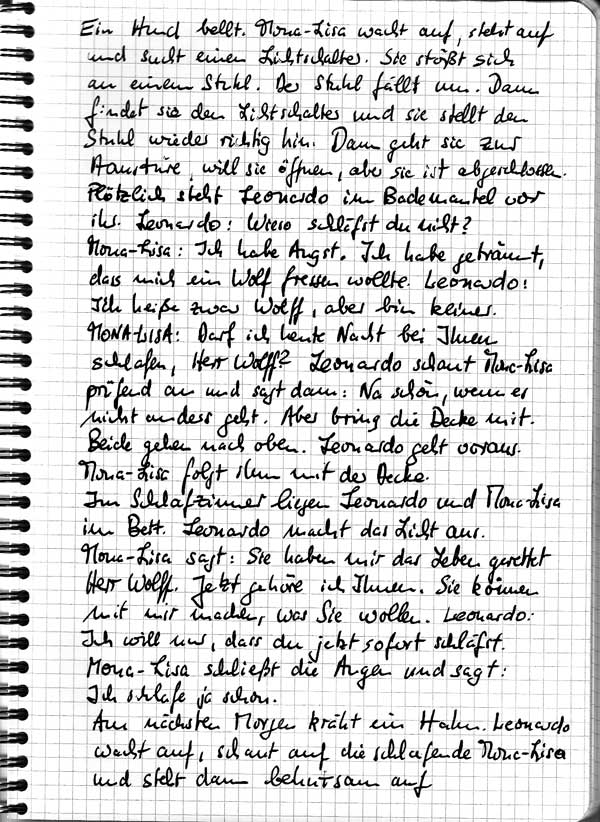 Ein Hund bellt. Mona-Lisa wacht auf, steht auf
und sucht einen Lichtschalter. Sie stößt sich
an einem Stuhl. Der Stuhl fällt um. Dann
findet sie den Lichtschalter und sie stellt den
Stuhl wieder richtig hin. Dann geht sie zur
Haustüre, will sie öffnen, aber sie ist abgeschlossen.
Plötzlich steht Leonardo im Bademantel vor
ihr. Leonardo: Wieso schläfst du nicht?
Mona-Lisa: Ich habe Angst. Ich habe geträumt,
dass mich ein Wolf fressen wollte. Leonardo:
Ich heiße zwar Wolff, aber bin keiner.
MONA-LISA: Darf ich heute Nacht bei Ihnen
schlafen, Herr Wolff? Leonardo schaut Mona-Lisa
prüfend an und sagt dann: Na schön, wenn es
nicht anders geht. Aber bring die Decke mit.
Beide gehen nach oben. Leonardo geht voraus.
Mona-Lisa folgt ihm mit der Decke.
Im Schlafzimmer liegen Leonardo und Mona-Lisa
im Bett. Leonardo macht das Licht aus.
Mona-Lisa sagt: Sie haben mir das Leben gerettet
Herr Wolff. Jetzt gehöre ich Ihnen. Sie können
mit mir machen, was Sie wollen. Leonardo:
Ich will nur, dass du jetzt sofort schläfst.
Mona-Lisa schließt die Augen und sagt:
Ich schlafe ja schon.
Am nächsten Morgen kräht ein Hahn. Leonardo
wacht auf, schaut auf die schlafende Mona-Lisa
und steht dann behutsam auf